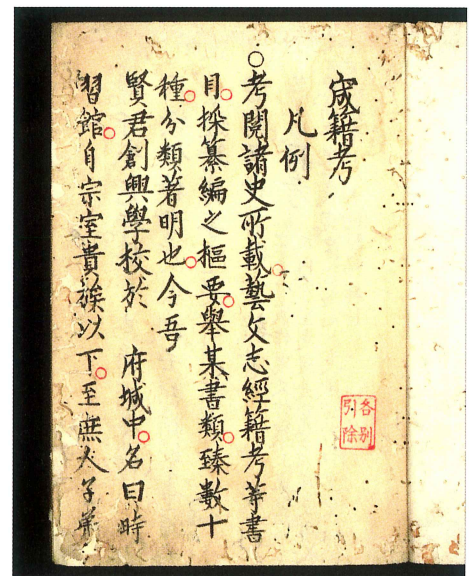 宬籍考
凡例
○考閱諸史所載藝文志經籍考等書
目採纂編之樞要擧某書類臻數十
種分類著明也今吾
賢君創興學校於　府城中名曰時
習館自宗室貴族以下至庶人子弟
各別
引除